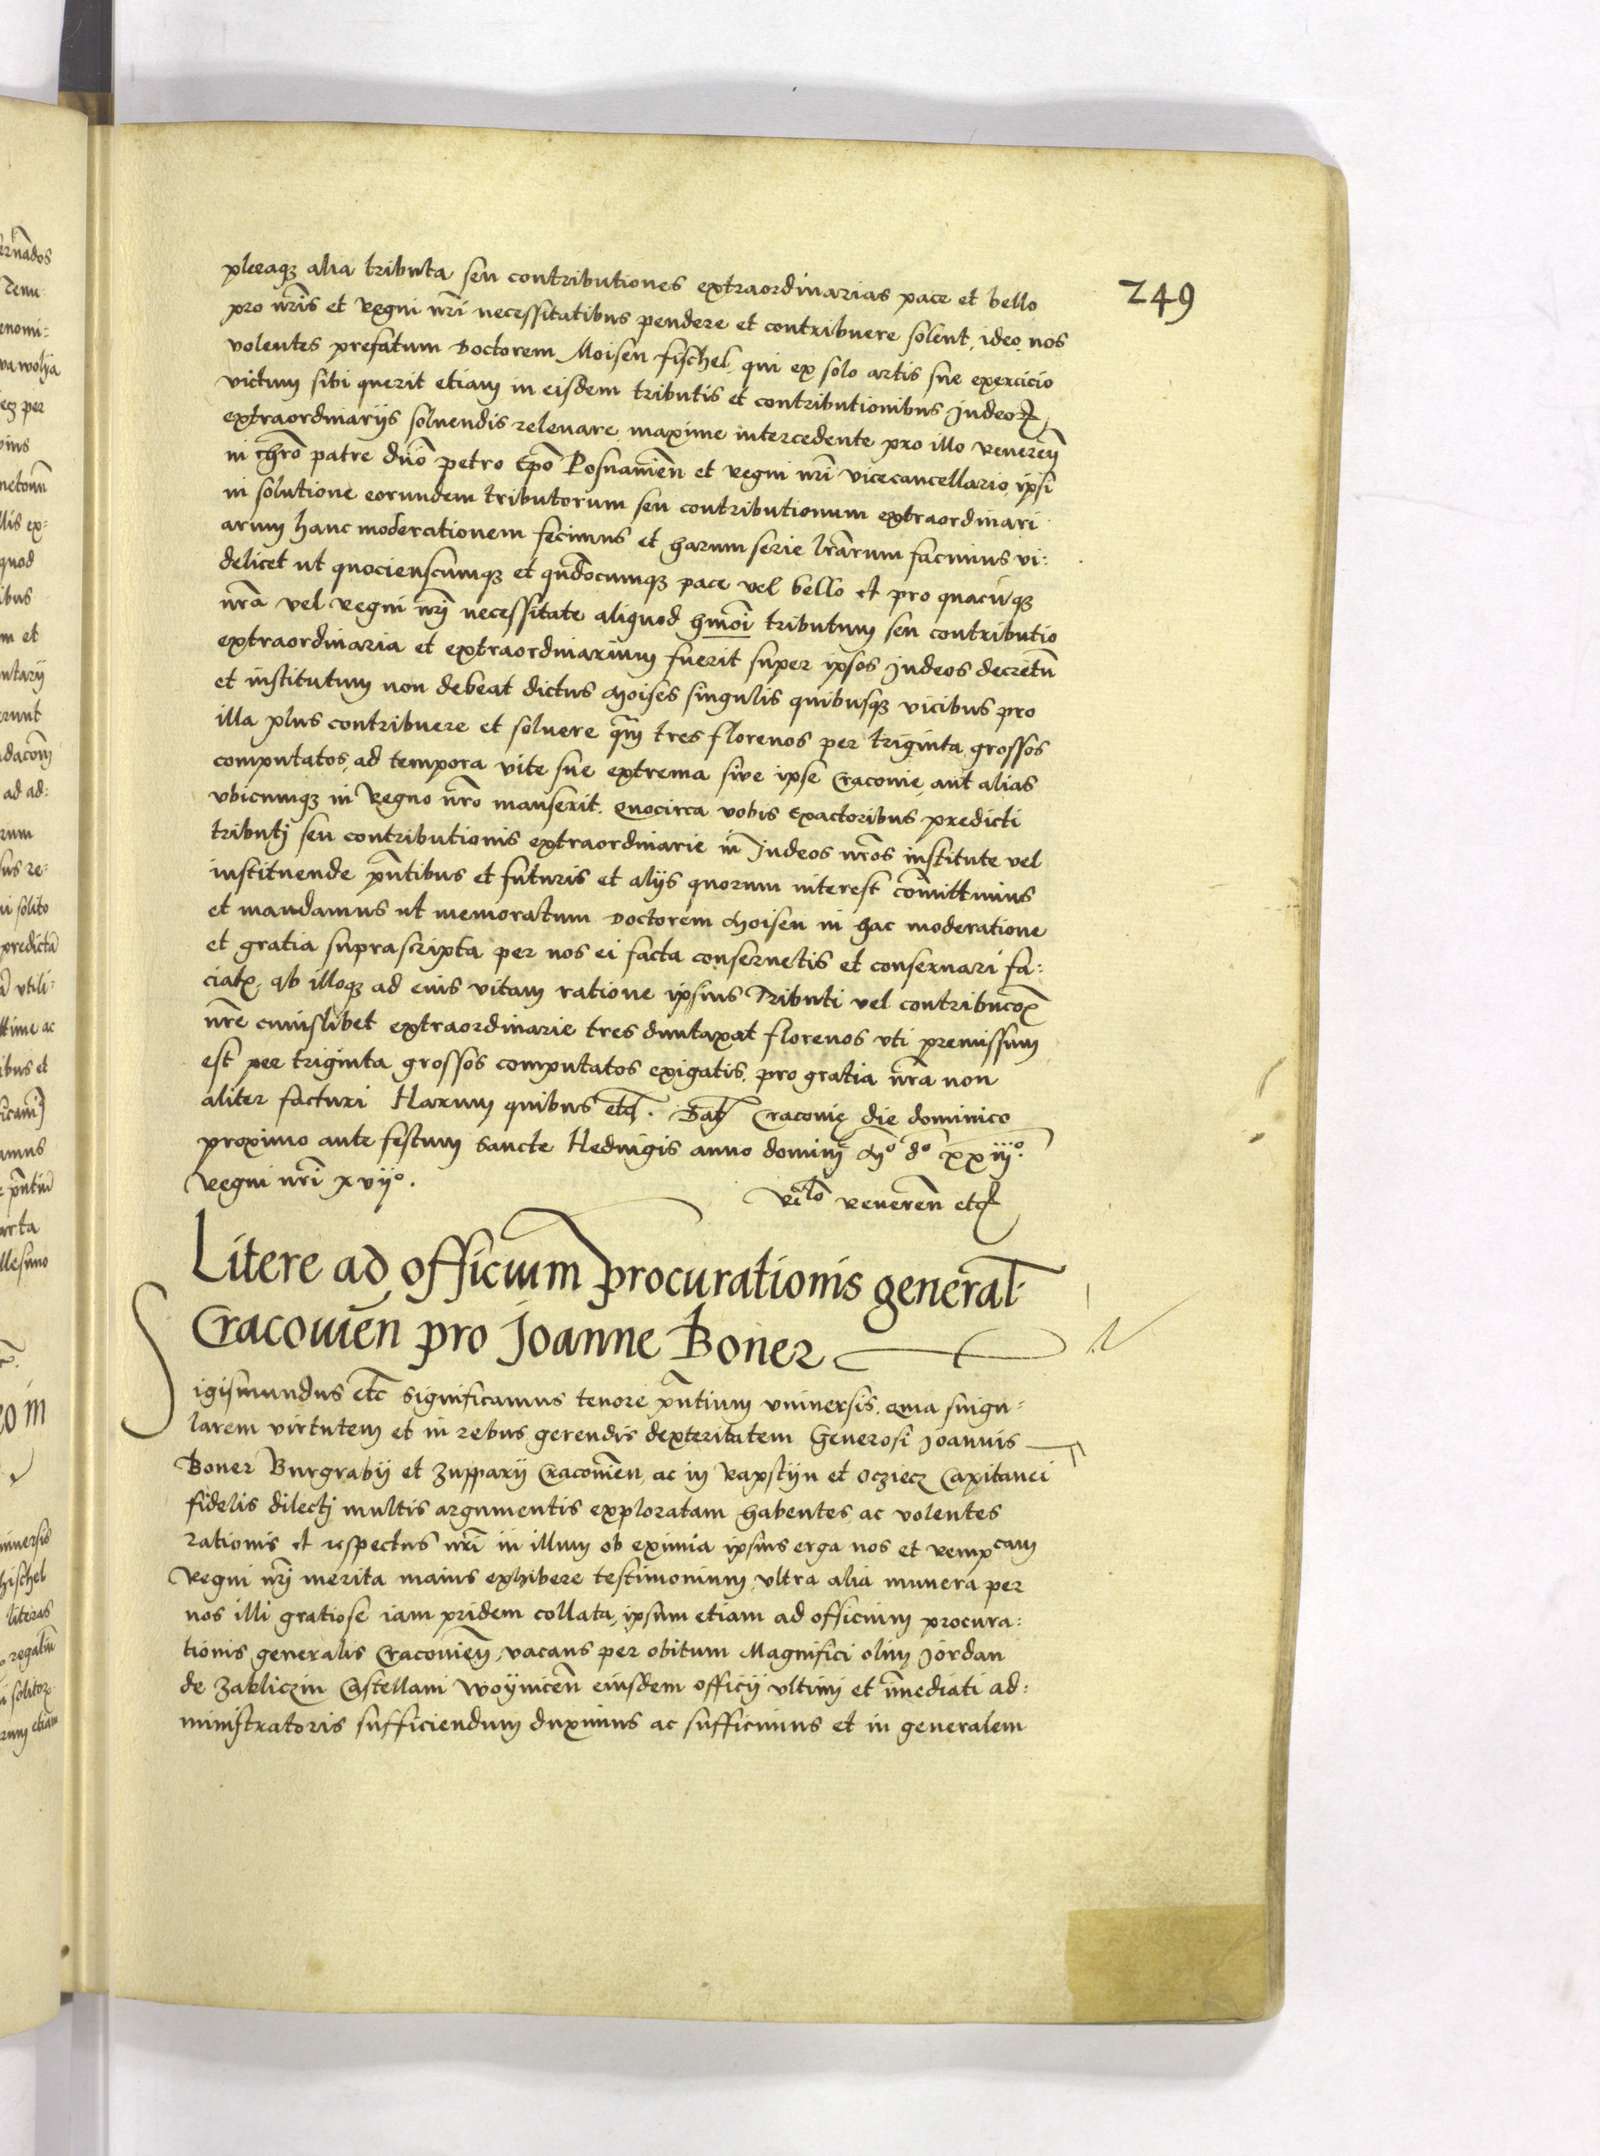 249
pleraq3 alia tributa seu contributiones extraordinarias pace et bello
pro nr̃is et regni nr̃i necessitatibus pendere et contribuere solent, ideo nos
volentes prefatum Doctorem Moisen fischel, qui ex solo artis sue exercicio
victum sibi querit etiam in eisdem tributis et contributionibus Judeoꝝ
extraordinariis soluendis releuare, maxime intercedente pro illo venereñ
in chr̃o patre dño petro epõ Posnanieñ et regni nr̃i vicecancellario, ipsi
in solutione eorundem tributorum seu contributionum extraordinari
arum hanc moderationem fecimus et harum serie lr̃arum facimus vi:
delicet ut quocienscumq3 et qũdocumq3 pace vel bello et pro quacũq3
nr̃a vel regni nr̃i necessitate aliquod hmõi tributum seu contributio
extraordinaria et extraordinarium fuerit super ipsos Judeos decretũ
et institutum non debeat dictus Moises singulis quibusq3 vicibus pro
illa plus contribuere et soluere q̃m tres florenos per triginta grossos
computatos, ad tempora vite sue extrema sive ipse Cracovie, aut alias
vbicumq3 in Regno nr̃o manserit. Quocirca vobis Exactoribus predicti
tributi seu contributionis extraordinarie in Judeos nr̃os institute vel
instituende p̃ntibus et futuris et aliis quorum interest com̃ittimus
et mandamus ut memoratum Doctorem Moisen in hac moderatione
et gratia suprascripta per nos ei facta conseruetis et conseruari fa:
ciatꝭ, ab illoq3 ad eius vitam ratione ipsius Tributi vel contribucõꝭ
nr̃e cuiuslibet extraordinarie tres duntaxat florenos vti premissum
est per triginta grossos computatos exigatis, pro gratia nr̃a non
aliter facturi Harum quibus etc̃. Dat̃ Cracovie die dominico
proximo ante festum Sancte Hedvigis anno domini Mº dº xxiijº.
Regni nr̃i xvijº.
Relõ Reuereñ etc
Litere ad officium procurationis general̃
Cracovieñ pro Joanne Boner
Sigismundus etc̃ Significamus tenore p̃ntium vniuersis. Quia singu:
larem virtutem et in rebus gerendis dexteritatem Generosi Joannis
Boner Burgrabii et Zupparii Cracovieñ, ac in Rapstijn et Ocziecz Capitanei
fidelis dilecti multis argumentis exploratam habentes, ac volentes
rationis et respectus nr̃i in illum ob eximia ipsius erga nos et Rempcam
Regni nr̃i merita maius exhibere testimonium, vltra alia munera per
nos illi gratiose iam pridem collata, ipsum etiam ad officium procura:
tionis generalis Cracovieñ, vacans per obitum Magnifici olim Jordan
de Zakliczin Castellani woyniceñ eiusdem officii vltimi et im̃ediati ad:
ministratoris sufficiendum duximus ac sufficimus et in generalem